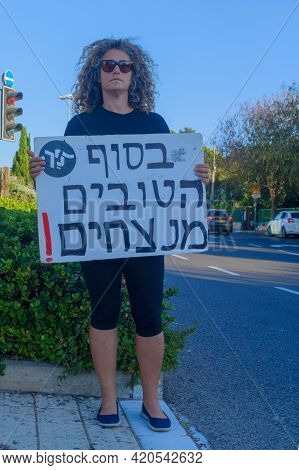 בסוף
הטובים
מנצחים!